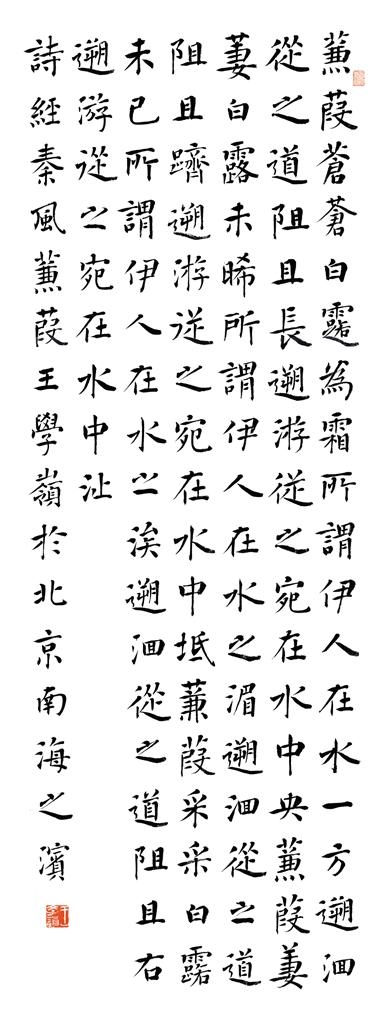 蒹葭蒼蒼白露為霜所謂伊人在水一方遡洄
從之道阻且長遡游從之宛在水中央蒹葭萋
萋白露未晞所謂伊人在水之湄遡洄從之道
阻且躋遡游從之宛在水中坻蒹葭采采白露
未已所謂伊人在水之涘遡洄從之道阻且右
遡游從之宛在水中沚
詩經秦風蒹葭王學嶺於北京南海之濱